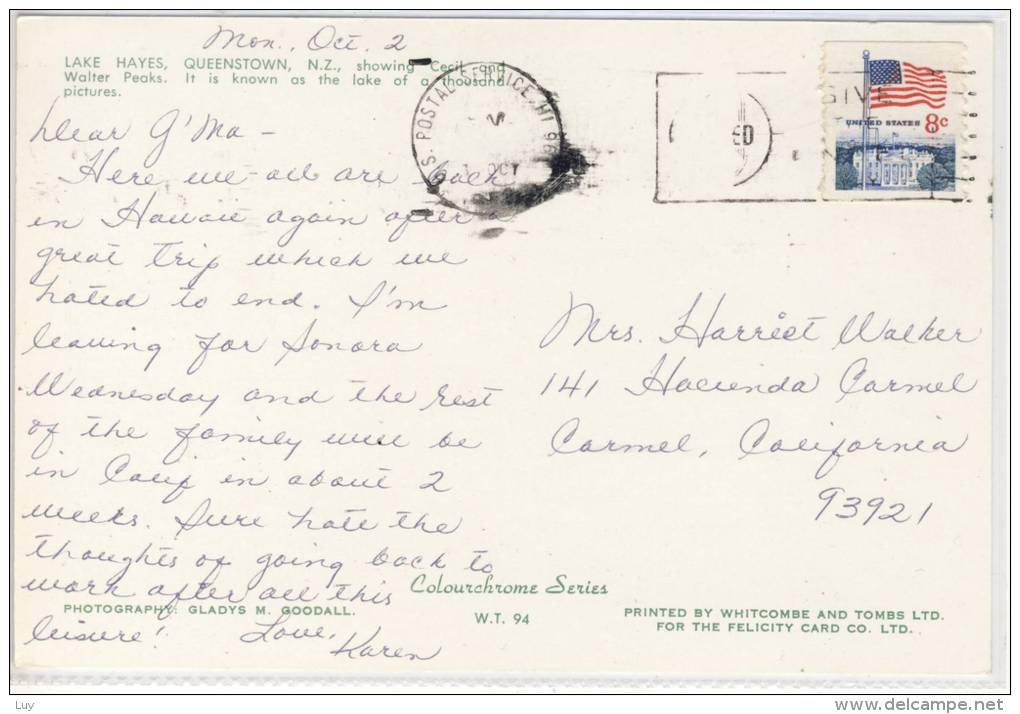 Mon., Oct. 2
LAKE HAYES, QUEENSTOWN, N.Z., showing Cecil and
Walter Peaks. It is known as the lake of a thousand
pictures.
Dear G'Ma -
Here we all are back
in Hawaii again after a
great trip which we
hated to end. I'm
leaving for Sonora
Wednesday and the rest
of the family will be
in Calif in about 2
weeks. Sure hate the
thoughts of going back to
work after all this
leisure! Love,
Karen
U.S. POSTAL SERVICE HI 96
OCT
GIVE
ED
UNITED STATES 8c
Mrs. Harriet Walker
141 Hacienda Carmel
Carmel, California
93921
Colourchrome Series
PHOTOGRAPHY: GLADYS M. GOODALL.
W.T. 94
PRINTED BY WHITCOMBE AND TOMBS LTD.
FOR THE FELICITY CARD CO. LTD.
Luy
delcampe.net